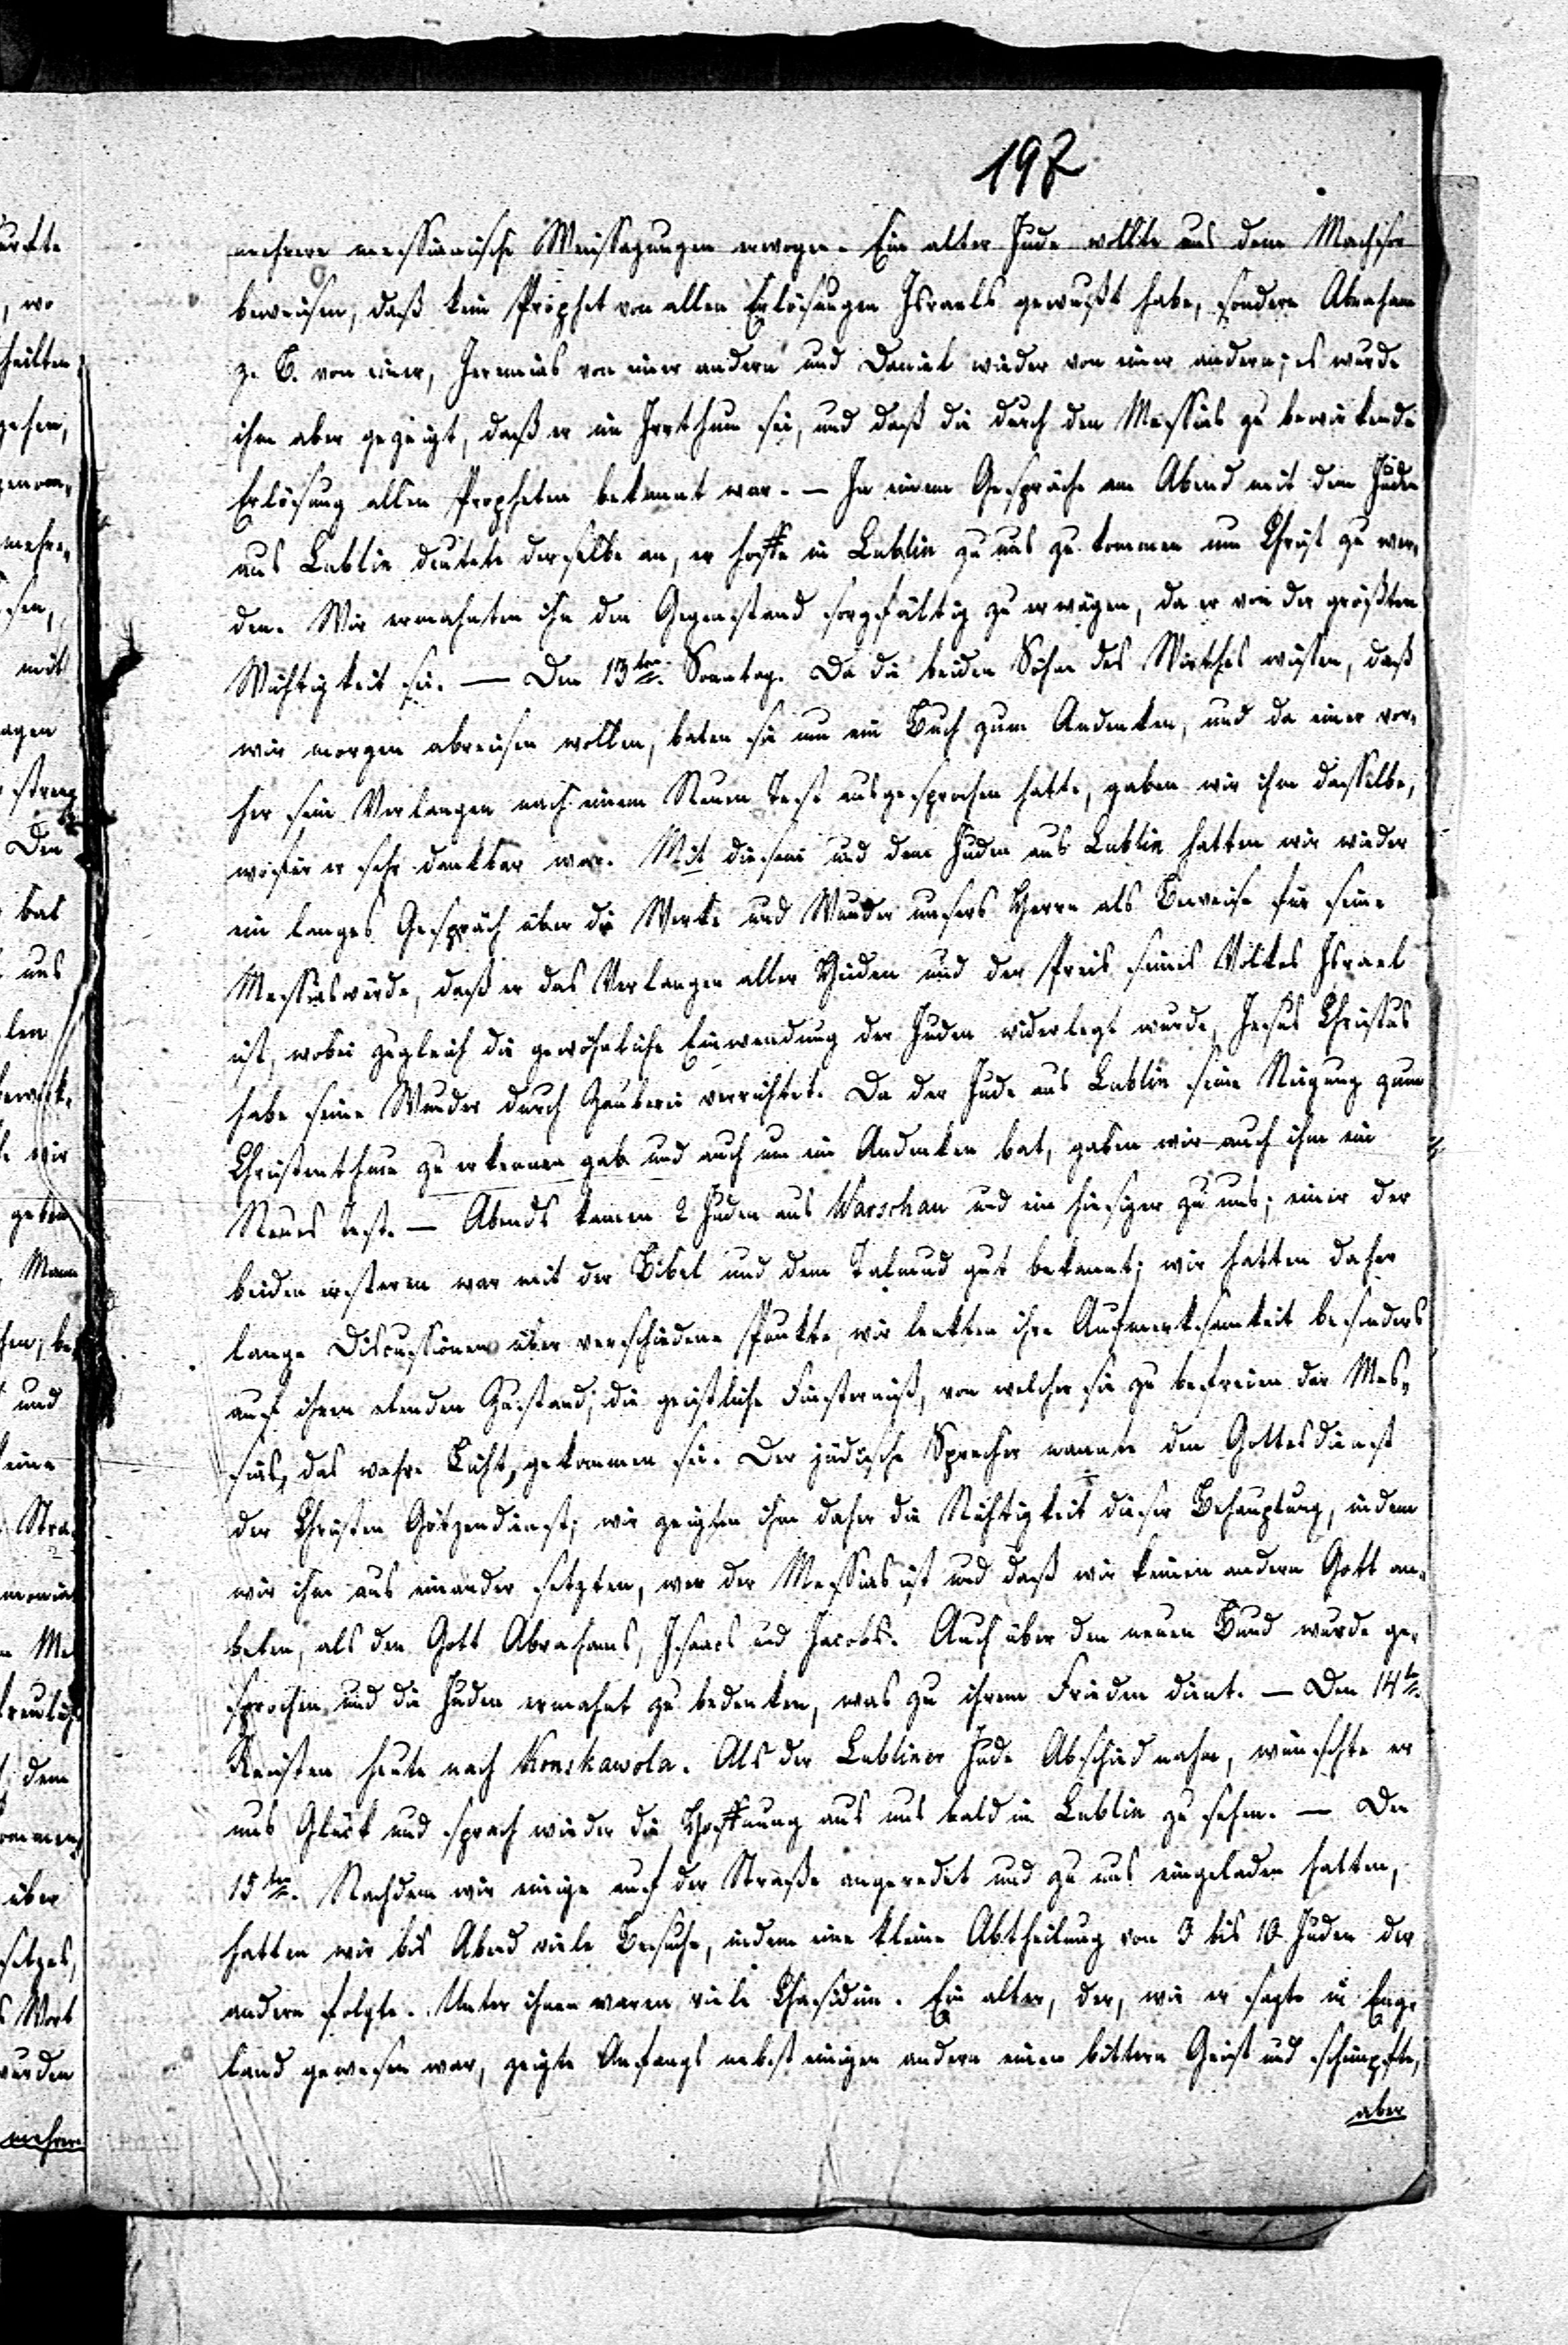 197
mehrere messianische Weissagungen erwogen. Ein alter Jude wollte aus dem Machsor
beweisen, daß kein Prophet von allen Erlösungen Israels gewußt habe, sondern Abraham
z. B. von einer, Jeremias von einer andern und Daniel wieder von einer andern; es wurde
ihm aber gezeigt, daß er im Irrthum sei, und daß die durch den Messias zu bewirkende
Erlösung allen Propheten bekannt war. — In einem Gespräche am Abend mit dem Juden
aus Lublin deutete derselbe an, er hoffe in Lublin zu uns zu kommen um Christ zu wer-
den. Wir ermahnten ihn den Gegenstand sorgfältig zu erwägen, da er von der größten
Wichtigkeit sei. — Den 13ten. Sonntag. Da die beiden Söhne des Wirthes wußten, daß
wir morgen abreisen wollen, baten sie um ein Buch zum Andenken, und da einer vor-
her sein Verlangen nach einem Neuen Test. ausgesprochen hatte, gaben wir ihm dasselbe,
wofür er sehr dankbar war. Mit diesem und dem Juden aus Lublin hatten wir wieder
ein langes Gespräch über die Werke und Wunder unsers Herrn als Beweise für seine
Messiaswürde, daß er das Verlangen aller Heiden und der Preis seines Volkes Israel
ist, wobei zugleich die gewöhnliche Einwendung der Juden widerlegt wurde, Jesus Christus
habe seine Wunder durch Zauberei verrichtet. Da der Jude aus Lublin seine Neigung zum
Christenthum zu erkennen gab und auch um ein Andenken bat, gaben wir auch ihm ein
Neues Test. — Abends kamen 2 Juden aus Warschau und ein hiesiger zu uns; einer der
beiden ersteren war mit der Bibel und dem Talmud gut bekannt; wir hatten daher
lange Discussionen über verschiedene Punkte, wir lenkten ihre Aufmerksamkeit besonders
auf ihren elenden Zustand, die geistliche Finsterniß, von welcher sie zu befreien der Mes-
sias, das wahre Licht, gekommen sei. Der jüdische Sprecher nannte den Gottesdienst
der Christen Götzendienst; wir zeigten ihm daher die Nichtigkeit dieser Behauptung, indem
wir ihm aus einander setzten, wer der Messias ist und daß wir keinen andern Gott an-
beten, als den Gott Abrahams, Isaacs und Jacobs. Auch über den neuen Bund wurde ge-
sprochen und die Juden ermahnt zu bedenken, was zu ihrem Frieden dient. — Den 14ten
Reisten heute nach Konskawola. Als der Lubliner Jude Abschied nahm, wünschte er
uns Glück und sprach wieder die Hoffnung aus uns bald in Lublin zu sehen. — Den
15ten. Nachdem wir einige auf der Straße angeredet und zu uns eingeladen hatten,
hatten wir bis Abend viele Besuche, indem eine kleine Abtheilung von 3 bis 10 Juden der
andern folgte. Unter ihnen waren viele Chasidim. Ein alter, der, wie er sagte in Eng-
land gewesen war, zeigte Anfangs nebst einigen andern einen bittern Geist und schimpfte,
aber